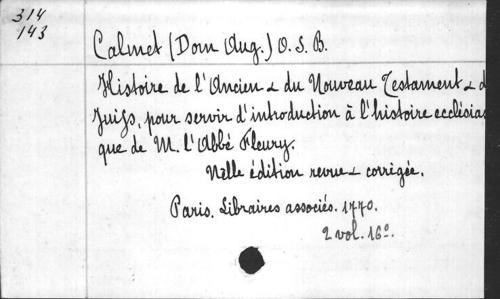 314
143
Calmet (Dom Aug.) O. S. B.
Histoire de l'Ancien & du Nouveau Testament & d
Juifs, pour servir d'introduction à l'histoire ecclésias
que de M. l'Abbé Fleury.
Nelle édition revue & corrigée.
Paris. Libraires associés. 1770.
2 vol. 16º.